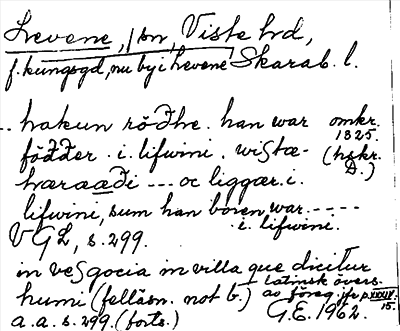 Levene, sn, Viste hd,
f. kungsgd, nu by i Levene Skarab. l.
... hakun röðhe. han war omkr. 1325.
föðder . i . lifwini . wistæ- (hskr. D.)
hæraaði --- oc liggær . i .
lifwini, sum han boren war. ----
i . lifwini.
VGL, s. 299.
in vesgocia in villa que dicitur
humi (felläsn. not b.) - latinsk övers. av föreg., jfr p. XXXIV. 15.
a. a. s. 299. (forts.) G.E. 1962.